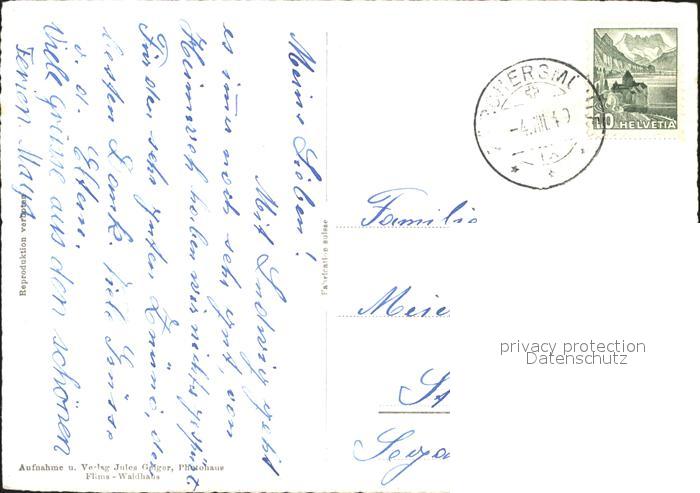 Meine Lieben!
Mit Ludwig geht
es immer noch sehr gut, von
Heimweh haben wir nichts gespürt.
Für den sehr guten Znüni, den
besten Dank. Viele Grüsse
v. d. Eltern.
Viele Grüsse aus den schönen
Ferien. Maya
Reproduktion verboten
Aufnahme u. Verlag Jules Geiger, Photohaus
Flims - Waldhaus
Fabrication suisse
-4.VIII.40
10 HELVETIA
Familie
Meie
St
privacy protection
Datenschutz